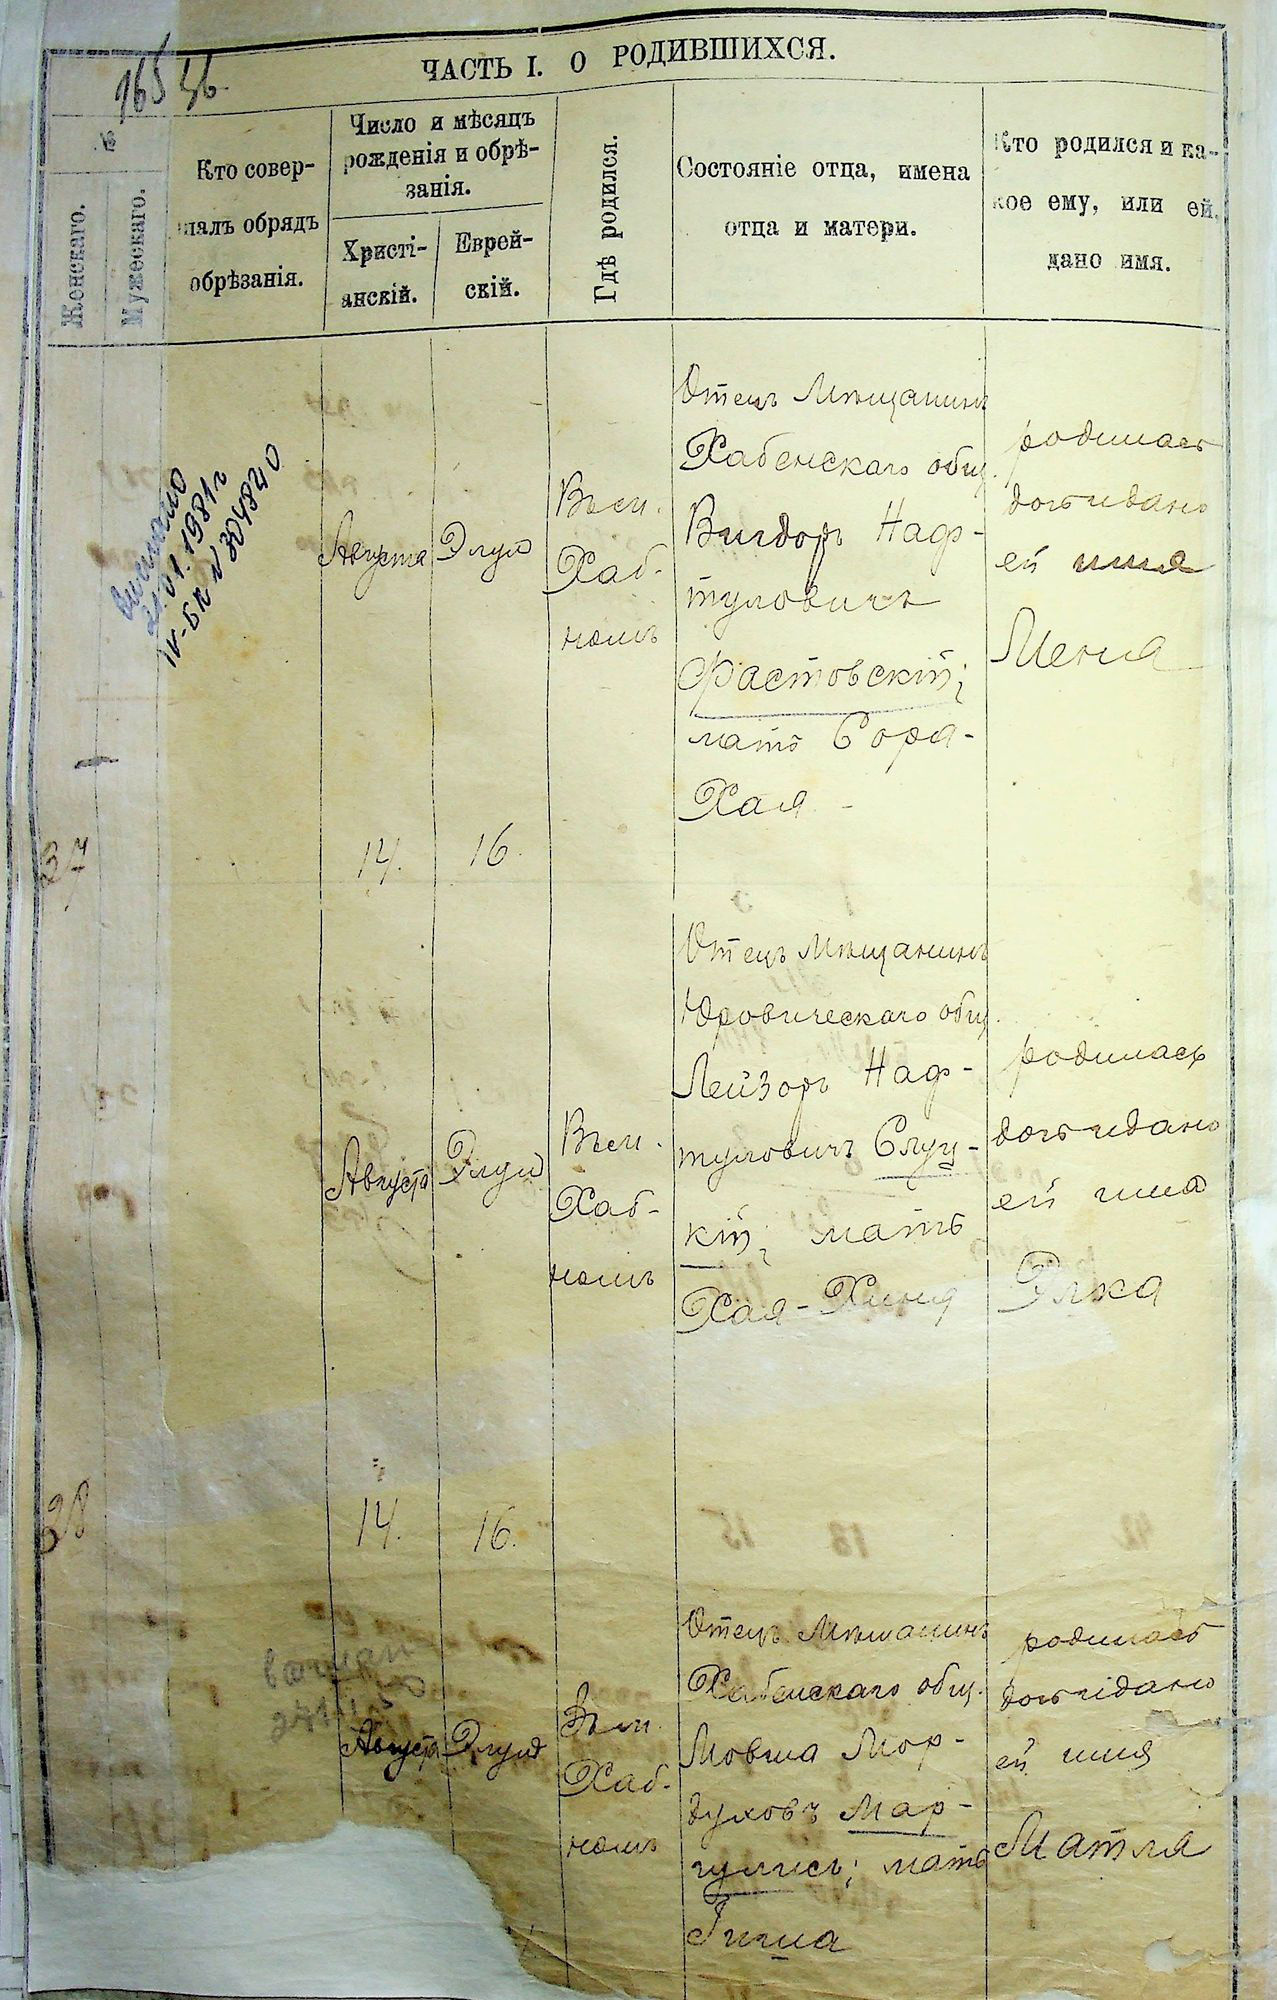 165 56.
ЧАСТЬ I. О РОДИВШИХСЯ.
№
Женскаго.
Мужескаго.
Кто совер-
шалъ обрядъ
обрѣзанія.
Число и мѣсяцъ
рожденія и обрѣ-
занія.
Христі-
анскій.
Еврей-
скій.
Гдѣ родился.
Состояніе отца, имена
отца и матери.
Кто родился и ка-
кое ему, или ей,
дано имя.
выслано
21.01.1981г
IV-БК № 304840
37
Августа
14.
Элул
16.
Въ м.
Хаб-
номъ
Отецъ Мѣщанинъ
Хабенскаго общ.
Вигдоръ Наф-
туловичъ
Фастовскій;
мать Сора-
Хая
родилась
дочь и дано
ей имя
Меня
38
Августа
14.
Элул
16.
Въ м.
Хаб-
номъ
Отецъ Мѣщанинъ
Юровическаго общ.
Лейзоръ Наф-
туловичъ Слуц-
кій; мать
Хая-Хиня
родилась
дочь и дано
ей имя
Элка
Августа
Элул
Въ м.
Хаб-
номъ
Отецъ Мѣщанинъ
Хабенскаго общ.
Мовша Мор-
духовъ Мар-
гулисъ; мать
родилась
дочь и дано
ей имя
Матля